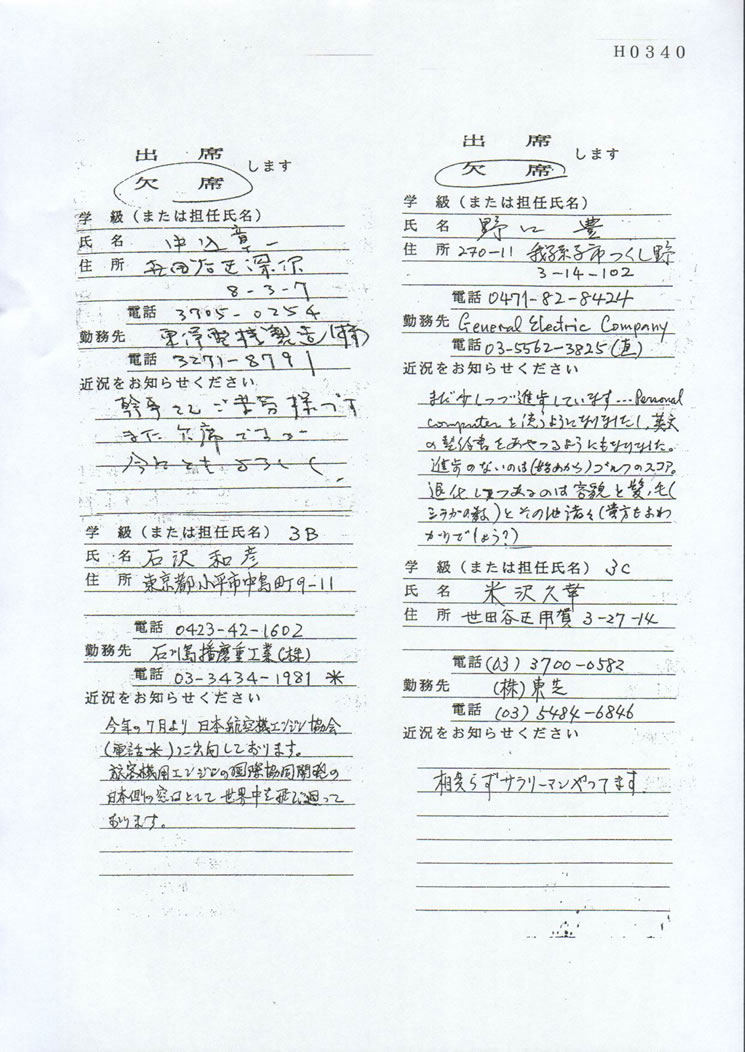 H0340
出席
します
欠席
学 級（または担任氏名）
氏 名 中込 章一
住 所 世田谷区深沢
8-3-7
電話 3705-0254
勤務先 製造(株)
電話 3271-8791
近況をお知らせください
幹事さんご苦労様です
また欠席ですが
今後ともよろしく
学 級（または担任氏名） 3B
氏 名 石沢 和彦
住 所 東京都小平市中島町9-11
電話 0423-42-1602
勤務先 石川島播磨重工業(株)
電話 03-3434-1981 ※
近況をお知らせください
今年の7月より 日本航空機エンジン協会
(電話※)に出向しております。
旅客機用エンジンの国際協同開発の
日本側の窓口として世界中を飛び廻って
おります。
出席
します
欠席
学 級（または担任氏名）
氏 名 野口 豊
住 所 270-11 我孫子市つくし野
3-14-102
電話 0471-82-8424
勤務先 General Electric Company
電話 03-5562-3825(直)
近況をお知らせください
まだ少しづつ進歩しています…Personal
computerを使うようになりましたし、英文
の報告書をあやつるようにもなりました。
進歩のないのは(始めから)ゴルフのスコア。
退化しつつあるのは容貌と髪ノ毛(
シラガの数)とその他諸々(貴方もおわ
かりでしょう?)
学 級（または担任氏名） 3C
氏 名 米沢久幸
住 所 世田谷区用賀 3-27-14
電話 (03) 3700-0582
勤務先 (株)東芝
電話 (03) 5484-6846
近況をお知らせください
相変らずサラリーマンやってます